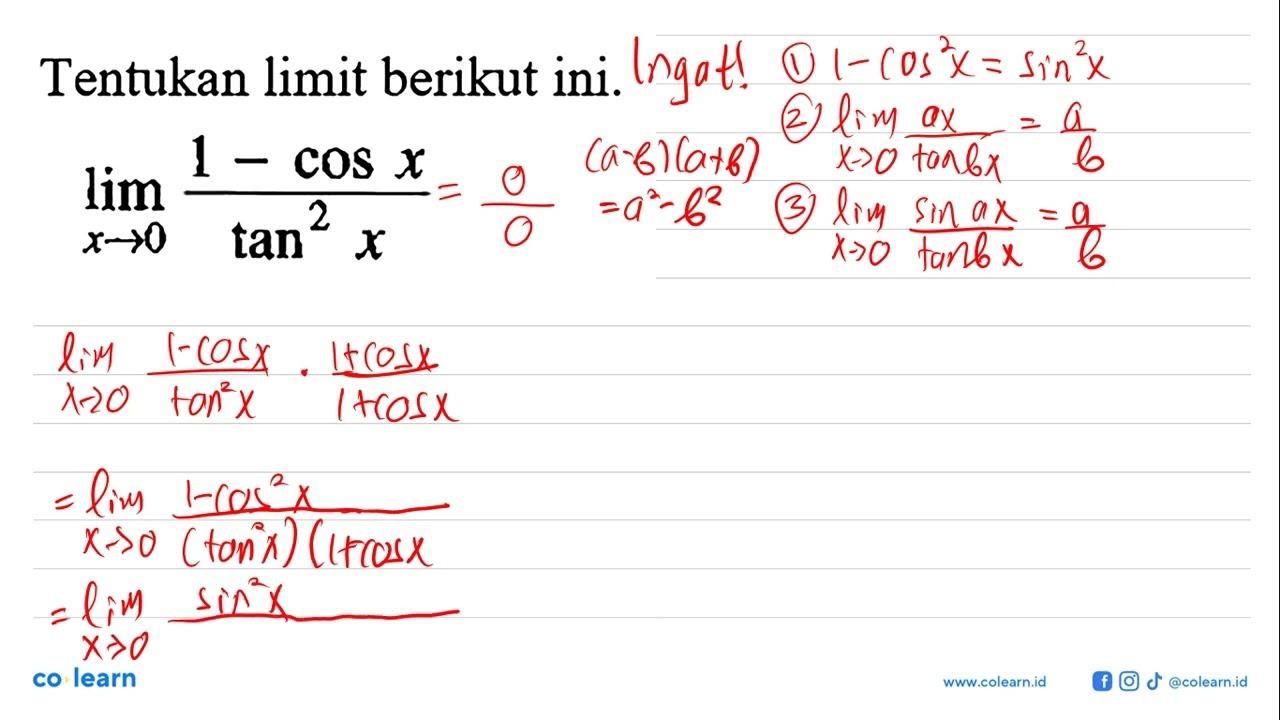 Tentukan limit berikut ini.
lim x→0 (1 - cos x)/(tan² x) = 0/0
Ingat! ① 1-cos²x = sin²x
② lim x→0 ax/(tan bx) = a/b
(a-b)(a+b)
=a²-b²
③ lim x→0 (sin ax)/(tan bx) = a/b
lim x→0 (1-cosx)/(tan²x) . (1+cosx)/(1+cosx)
= lim x→0 (1-cos²x)/((tan²x)(1+cosx
= lim x→0 sin²x
co learn
www.colearn.id
@colearn.id